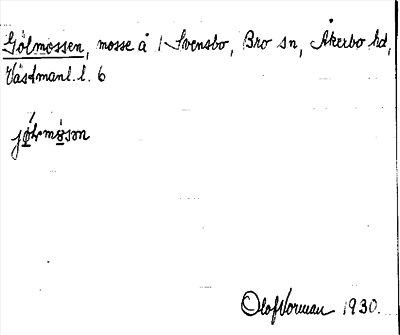 Gölmossen, mosse å 1 Svensbo, Bro sn, Åkerbo hd,
Västmanl. l. 6
Olof Vorman 1930.